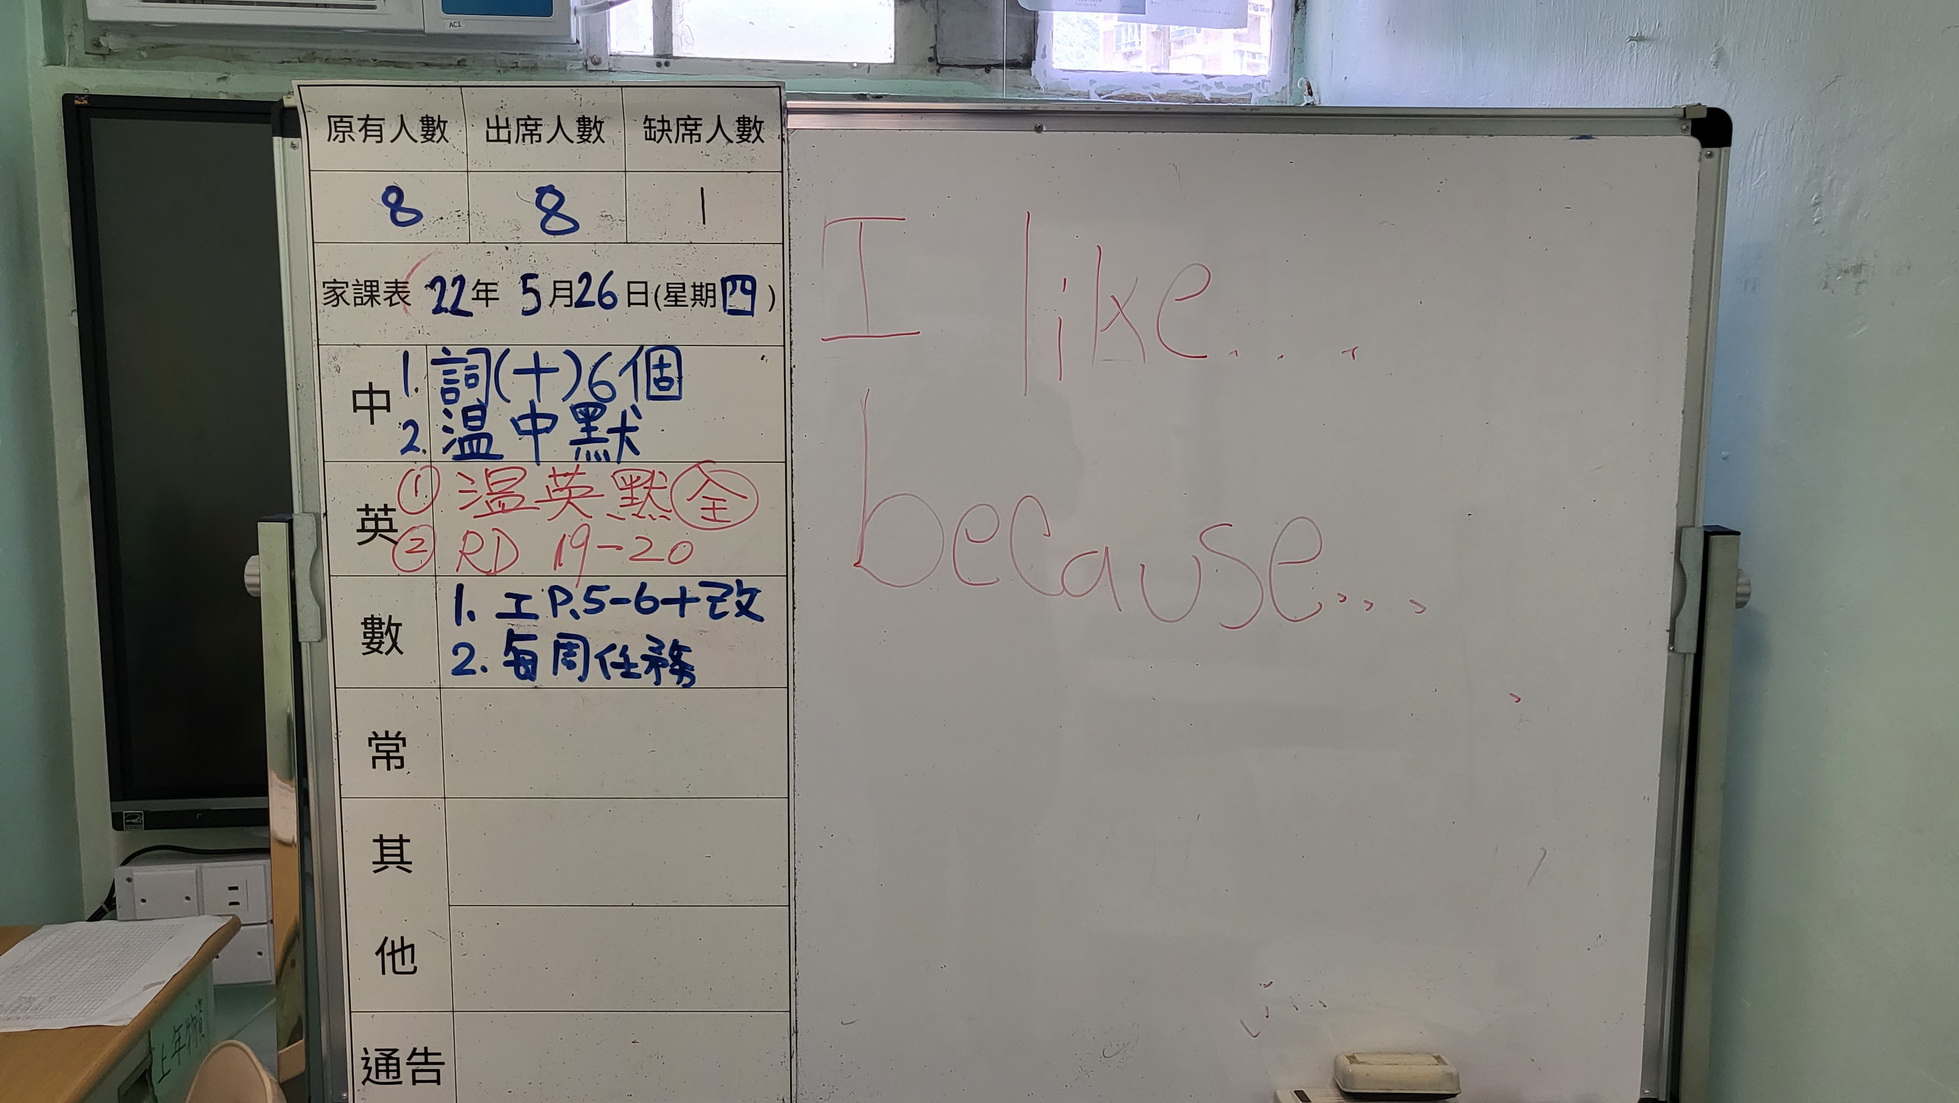 AC1
原有人數 出席人數 缺席人數
8 8 1
家課表 22年 5月26日(星期四)
中 1. 詞(十)6個
2. 溫中默
英 ① 溫英默全
② RD 19-20
數 1. 工P.5-6+改
2. 每周任務
常
其
他
通告
I like...
because...
上年物資